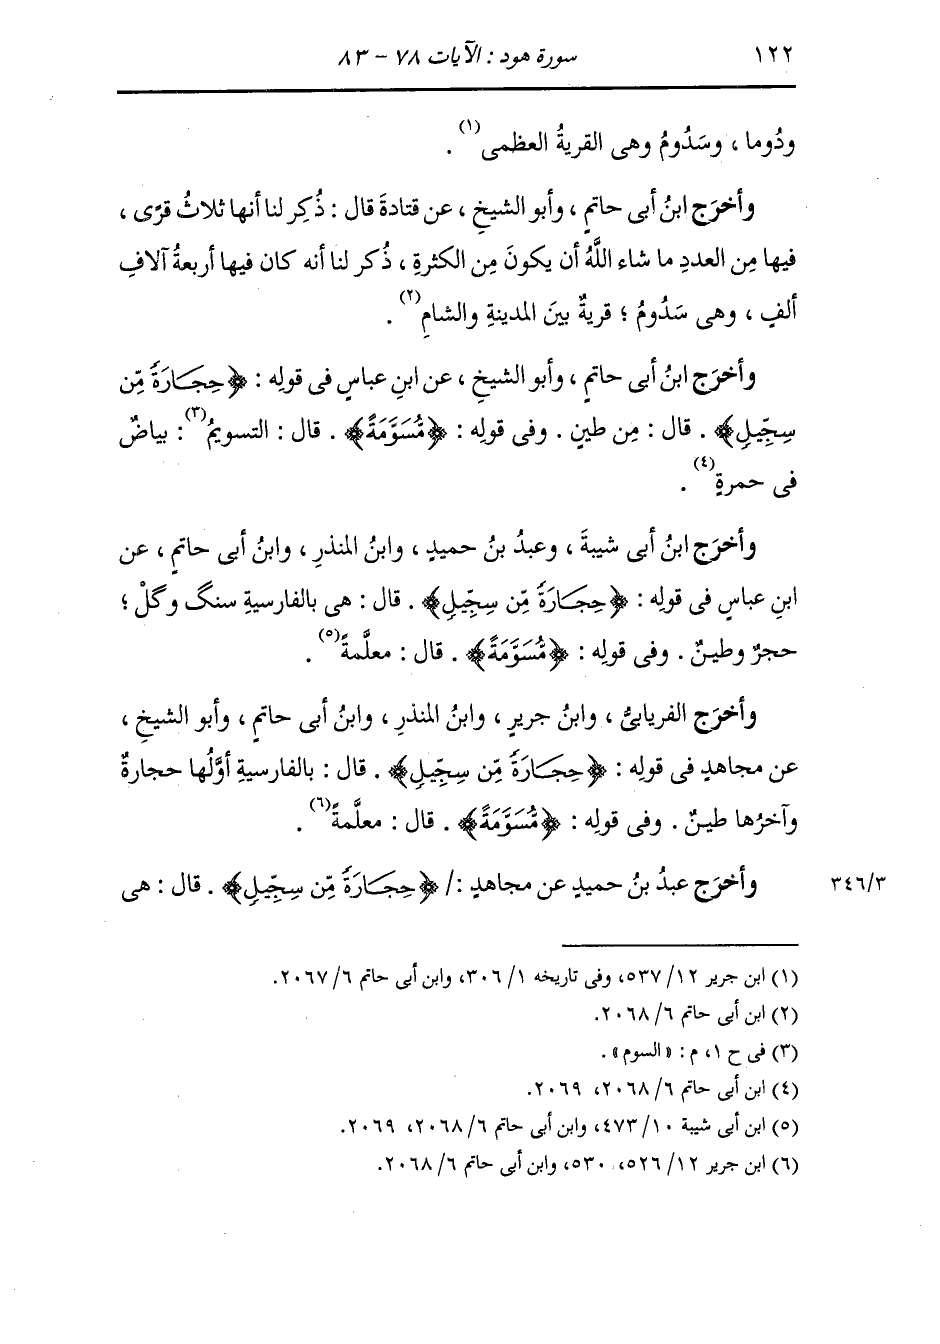 ١٢٢ سورة هود : الآيات ٧٨ - ٨٣
ودُوما ، وسَدُومُ وهى القريةُ العظمى(١) .
وأخرَج ابنُ أبى حاتمٍ ، وأبو الشيخِ ، عن قتادةَ قال : ذُكِر لنا أنها ثلاثُ قرًى ،
فيها مِن العددِ ما شاء اللَّهُ أن يكونَ مِن الكثرةِ ، ذُكر لنا أنه كان فيها أربعةُ آلافِ
ألفٍ ، وهى سَدُومُ ؛ قريةٌ بينَ المدينةِ والشامِ(٢) .
وأخرَج ابنُ أبى حاتمٍ ، وأبو الشيخِ ، عن ابنِ عباسٍ فى قولِه : ﴿حِجَارَةً مِّن
سِجِّيلٍ﴾ . قال : مِن طينٍ . وفى قولِه : ﴿مُّسَوَّمَةً﴾ . قال : التسويمُ(٣) : بياضٌ
فى حمرةٍ(٤) .
وأخرَج ابنُ أبى شيبةَ ، وعبدُ بنُ حميدٍ ، وابنُ المنذرِ ، وابنُ أبى حاتمٍ ، عن
ابنِ عباسٍ فى قولِه : ﴿حِجَارَةً مِّن سِجِّيلٍ﴾ . قال : هى بالفارسيةِ سنگ وگلْ ؛
حجرٌ وطينٌ . وفى قولِه : ﴿مُّسَوَّمَةً﴾ . قال : معلَّمةً(٥) .
وأخرَج الفريابىُّ ، وابنُ جريرٍ ، وابنُ المنذرِ ، وابنُ أبى حاتمٍ ، وأبو الشيخِ ،
عن مجاهدٍ فى قولِه : ﴿حِجَارَةً مِّن سِجِّيلٍ﴾ . قال : بالفارسيةِ أوَّلُها حجارةٌ
وآخرُها طينٌ . وفى قولِه : ﴿مُّسَوَّمَةً﴾ . قال : معلَّمةً(٦) .
٣٤٦/٣ وأخرَج عبدُ بنُ حميدٍ عن مجاهدٍ :/ ﴿حِجَارَةً مِّن سِجِّيلٍ﴾ . قال : هى
(١) ابن جرير ١٢/ ٥٣٧، وفى تاريخه ١/ ٣٠٦، وابن أبى حاتم ٦/ ٢٠٦٧.
(٢) ابن أبى حاتم ٦/ ٢٠٦٨.
(٣) فى ح ١، م : «السوم» .
(٤) ابن أبى حاتم ٦/ ٢٠٦٨، ٢٠٦٩.
(٥) ابن أبى شيبة ١٠/ ٤٧٣، وابن أبى حاتم ٦/ ٢٠٦٨، ٢٠٦٩.
(٦) ابن جرير ١٢/ ٥٢٦، ٥٣٠، وابن أبى حاتم ٦/ ٢٠٦٨.